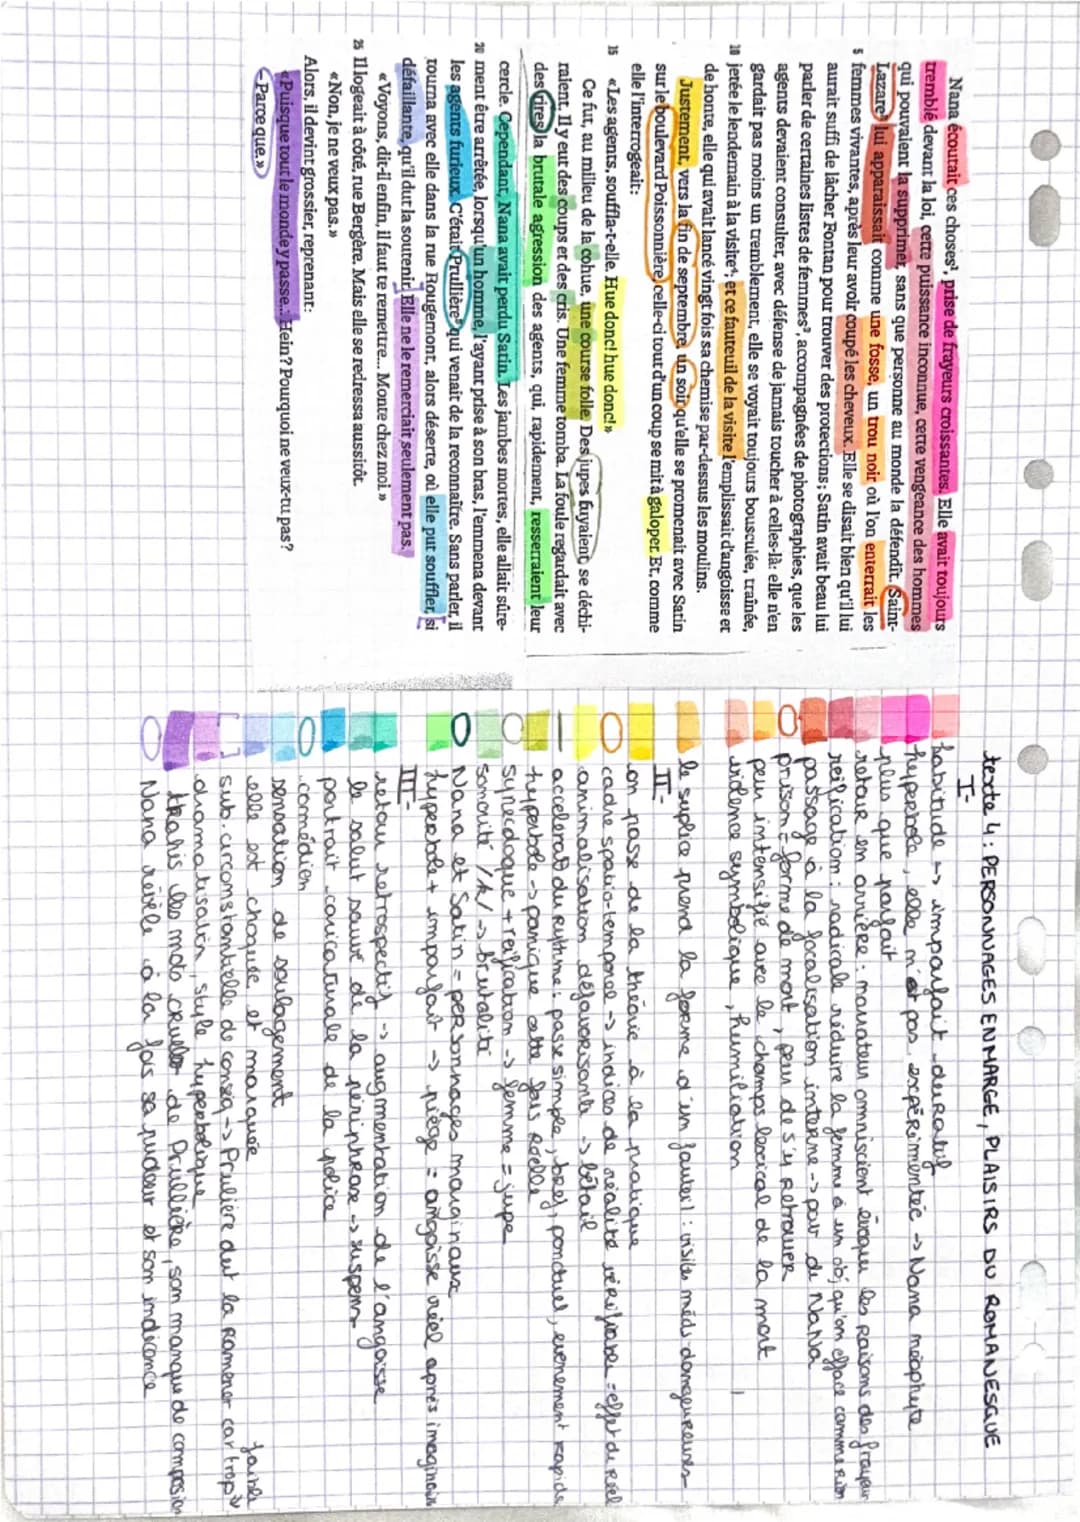 Nana écoutait ces choses¹, prise de frayeurs croissantes. Elle avait toujours
tremblé devant la loi, cette puissance inconnue, cette vengeance des hommes
qui pouvaient la supprimer, sans que personne au monde la défendît. Saint-
Lazare² lui apparaissait comme une fosse, un trou noir où l'on enterrait les
5 femmes vivantes, après leur avoir coupé les cheveux. Elle se disait bien qu'il lui
aurait suffi de lâcher Fontan pour trouver des protections; Satin avait beau lui
parler de certaines listes de femmes³, accompagnées de photographies, que les
agents devaient consulter, avec défense de jamais toucher à celles-là: elle n'en
gardait pas moins un tremblement, elle se voyait toujours bousculée, traînée,
10 jetée le lendemain à la visite⁴; et ce fauteuil de la visite l'emplissait d'angoisse et
de honte, elle qui avait lancé vingt fois sa chemise par-dessus les moulins.
Justement, vers la fin de septembre, un soir qu'elle se promenait avec Satin
sur le boulevard Poissonnière, celle-ci tout d'un coup se mit à galoper. Et, comme
elle l'interrogeait:
15 «Les agents, souffla-t-elle. Hue donc! hue donc!»
Ce fut, au milieu de la cohue, une course folle. Des jupes fuyaient, se déchi-
raient. Il y eut des coups et des cris. Une femme tomba. La foule regardait avec
des rires la brutale agression des agents, qui, rapidement, resserraient leur
cercle. Cependant, Nana avait perdu Satin. Les jambes mortes, elle allait sûre-
20 ment être arrêtée, lorsqu'un homme, l'ayant prise à son bras, l'emmena devant
les agents furieux. C'était Prullière⁵, qui venait de la reconnaître. Sans parler, il
tourna avec elle dans la rue Rougemont, alors déserte, où elle put souffler, si
défaillante, qu'il dut la soutenir. Elle ne le remerciait seulement pas.
«Voyons, dit-il enfin, il faut te remettre... Monte chez moi.»
25 Il logeait à côté, rue Bergère. Mais elle se redressa aussitôt.
«Non, je ne veux pas.»
Alors, il devint grossier, reprenant:
«Puisque tout le monde y passe... Hein? Pourquoi ne veux-tu pas?
– Parce que.»
texte 4 : PERSONNAGES EN MARGE, PLAISIRS DU ROMANESQUE
I-
habitude -> imparfait duratif
hyperbole, elle n'est pas expérimentée -> Nana néophyte
plus que parfait
retour en arrière : narrateur omniscient évoque les raisons des frayeur
reification : radicale réduire la femme à un obj qu'on efface comme rien
passage à la focalisation interne -> peur de Nana
prison = forme de mort, peur de s'y retrouver
peur intensifié avec le champs lexical de la mort
violence symbolique, humiliation
le suplice prend la forme d'un fauteil : visites méds dangeureuses
II-
on passe de la théorie à la pratique
cadre spatio-temporel -> indices de réalité vérifiables = effet de réel
animalisation défavorisante -> bétail
accelerat° du rythme : passé simple, bref, ponctuel, evenement rapide
hyperbole -> panique cette fois réelle
synecdoque + reification -> femme = jupe
sonorité /k/ -> brutalité
Nana et Satin = personnages marginaux
hyperbole + imparfait -> piège = angoisse réel après imaginaire
III-
retour retrospectif -> augmentation de l'angoisse
le salut sauvé de la périphrase -> suspens
portrait caricaturale de la police
comédien
sensation de soulagement
elle est choquée et marquée
sub. circonstantielle de conséq -> Prulière dut la ramener car trop faible
dramatisation, style hyperbolique
trahis les mots cruels de Prullière, son manque de compassion
Nana révèle à la fois sa pudeur et son indécence